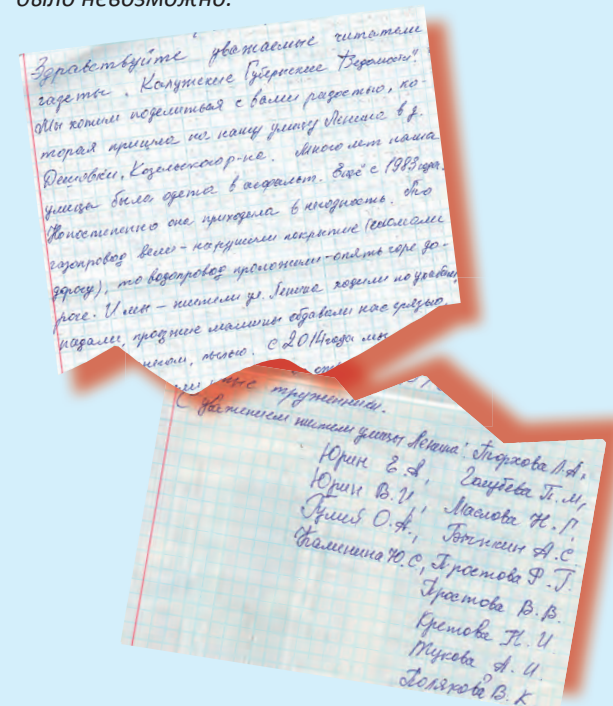 было невозможно.
Здравствуйте уважаемые читатели
газеты "Калужские Губернские Ведомости".
Мы хотим поделиться с вами радостью, ко-
торая пришла на нашу улицу Ленина в д.
Дешовки, Козельского р-на. Много лет наша
улица была одета в асфальт. Ещё с 1983 года.
Но постепенно она приходила в негодность. То
газопровод вели - нарушили покрытие (сломали
дорогу), то водопровод проложили - опять горе до-
роге. И мы - жители ул. Ленина ходили по ухабам,
падали, проезжие машины обдавали нас грязью,
пылью. С 2014 года мы
труженики.
С уважением жители улицы Ленина:
Юрин Е.А, Голубева П.М,
Юрин В.И, Маслова Н.Г.
О.А, А.С.
Каменина Ю.С, Простова Ф.Г.
Простова В.В.
Кретова Н.И.
Жукова А.И.
Полякова В.К